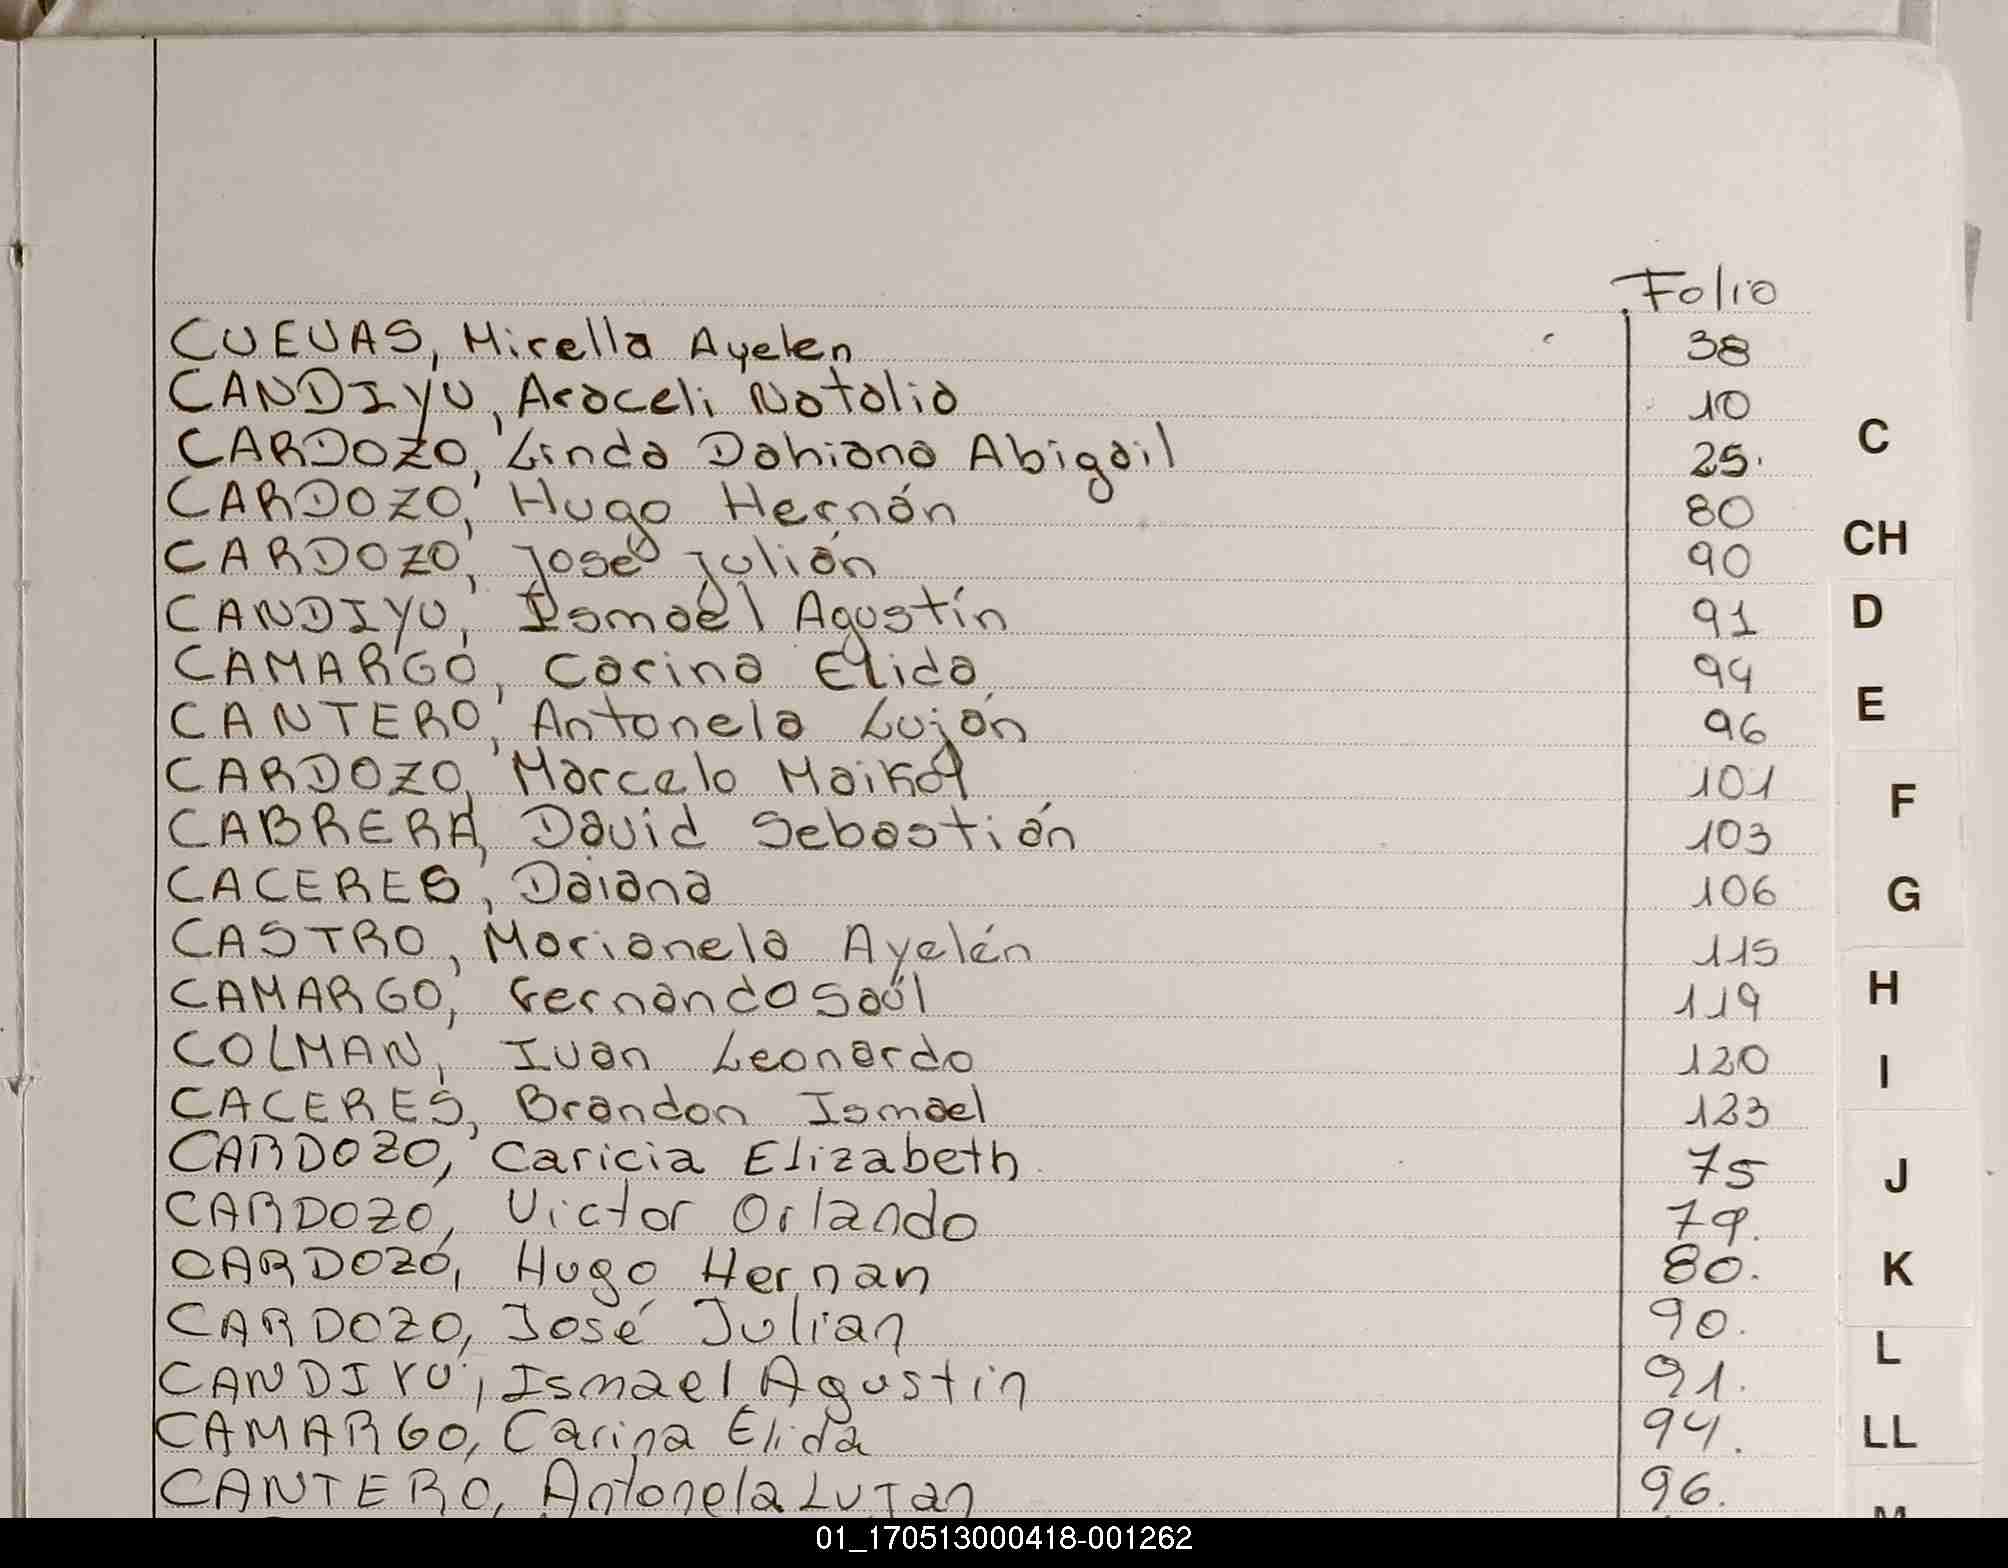 Folio
CUEVAS, Mirella Ayelen 38
CANDIYU, Araceli Natalia 10
CARDOZO, Linda Dahiana Abigail 25.
CARDOZO, Hugo Hernán 80
CARDOZO, José Julián 90
CANDIYU, Ismael Agustín 91
CAMARGO, Carina Elida 94
CANTERO, Antonela Luján 96
CARDOZO, Marcelo Maikol 101
CABRERA, David Sebastián 103
CACERES, Daiana 106
CASTRO, Marianela Ayelén 115
CAMARGO, Fernando Saúl 119
COLMAN, Ivan Leonardo 120
CACERES, Brandon Ismael 123
CARDOZO, Caricia Elizabeth 75
CARDOZO, Victor Orlando 79.
CARDOZO, Hugo Hernan 80.
CARDOZO, José Julian 90.
CANDIYU, Ismael Agustin 91.
CAMARGO, Carina Elida 94.
CANTERO, Antonela LuJan 96.
C
CH
D
E
F
G
H
I
J
K
L
LL
M
01_170513000418-001262